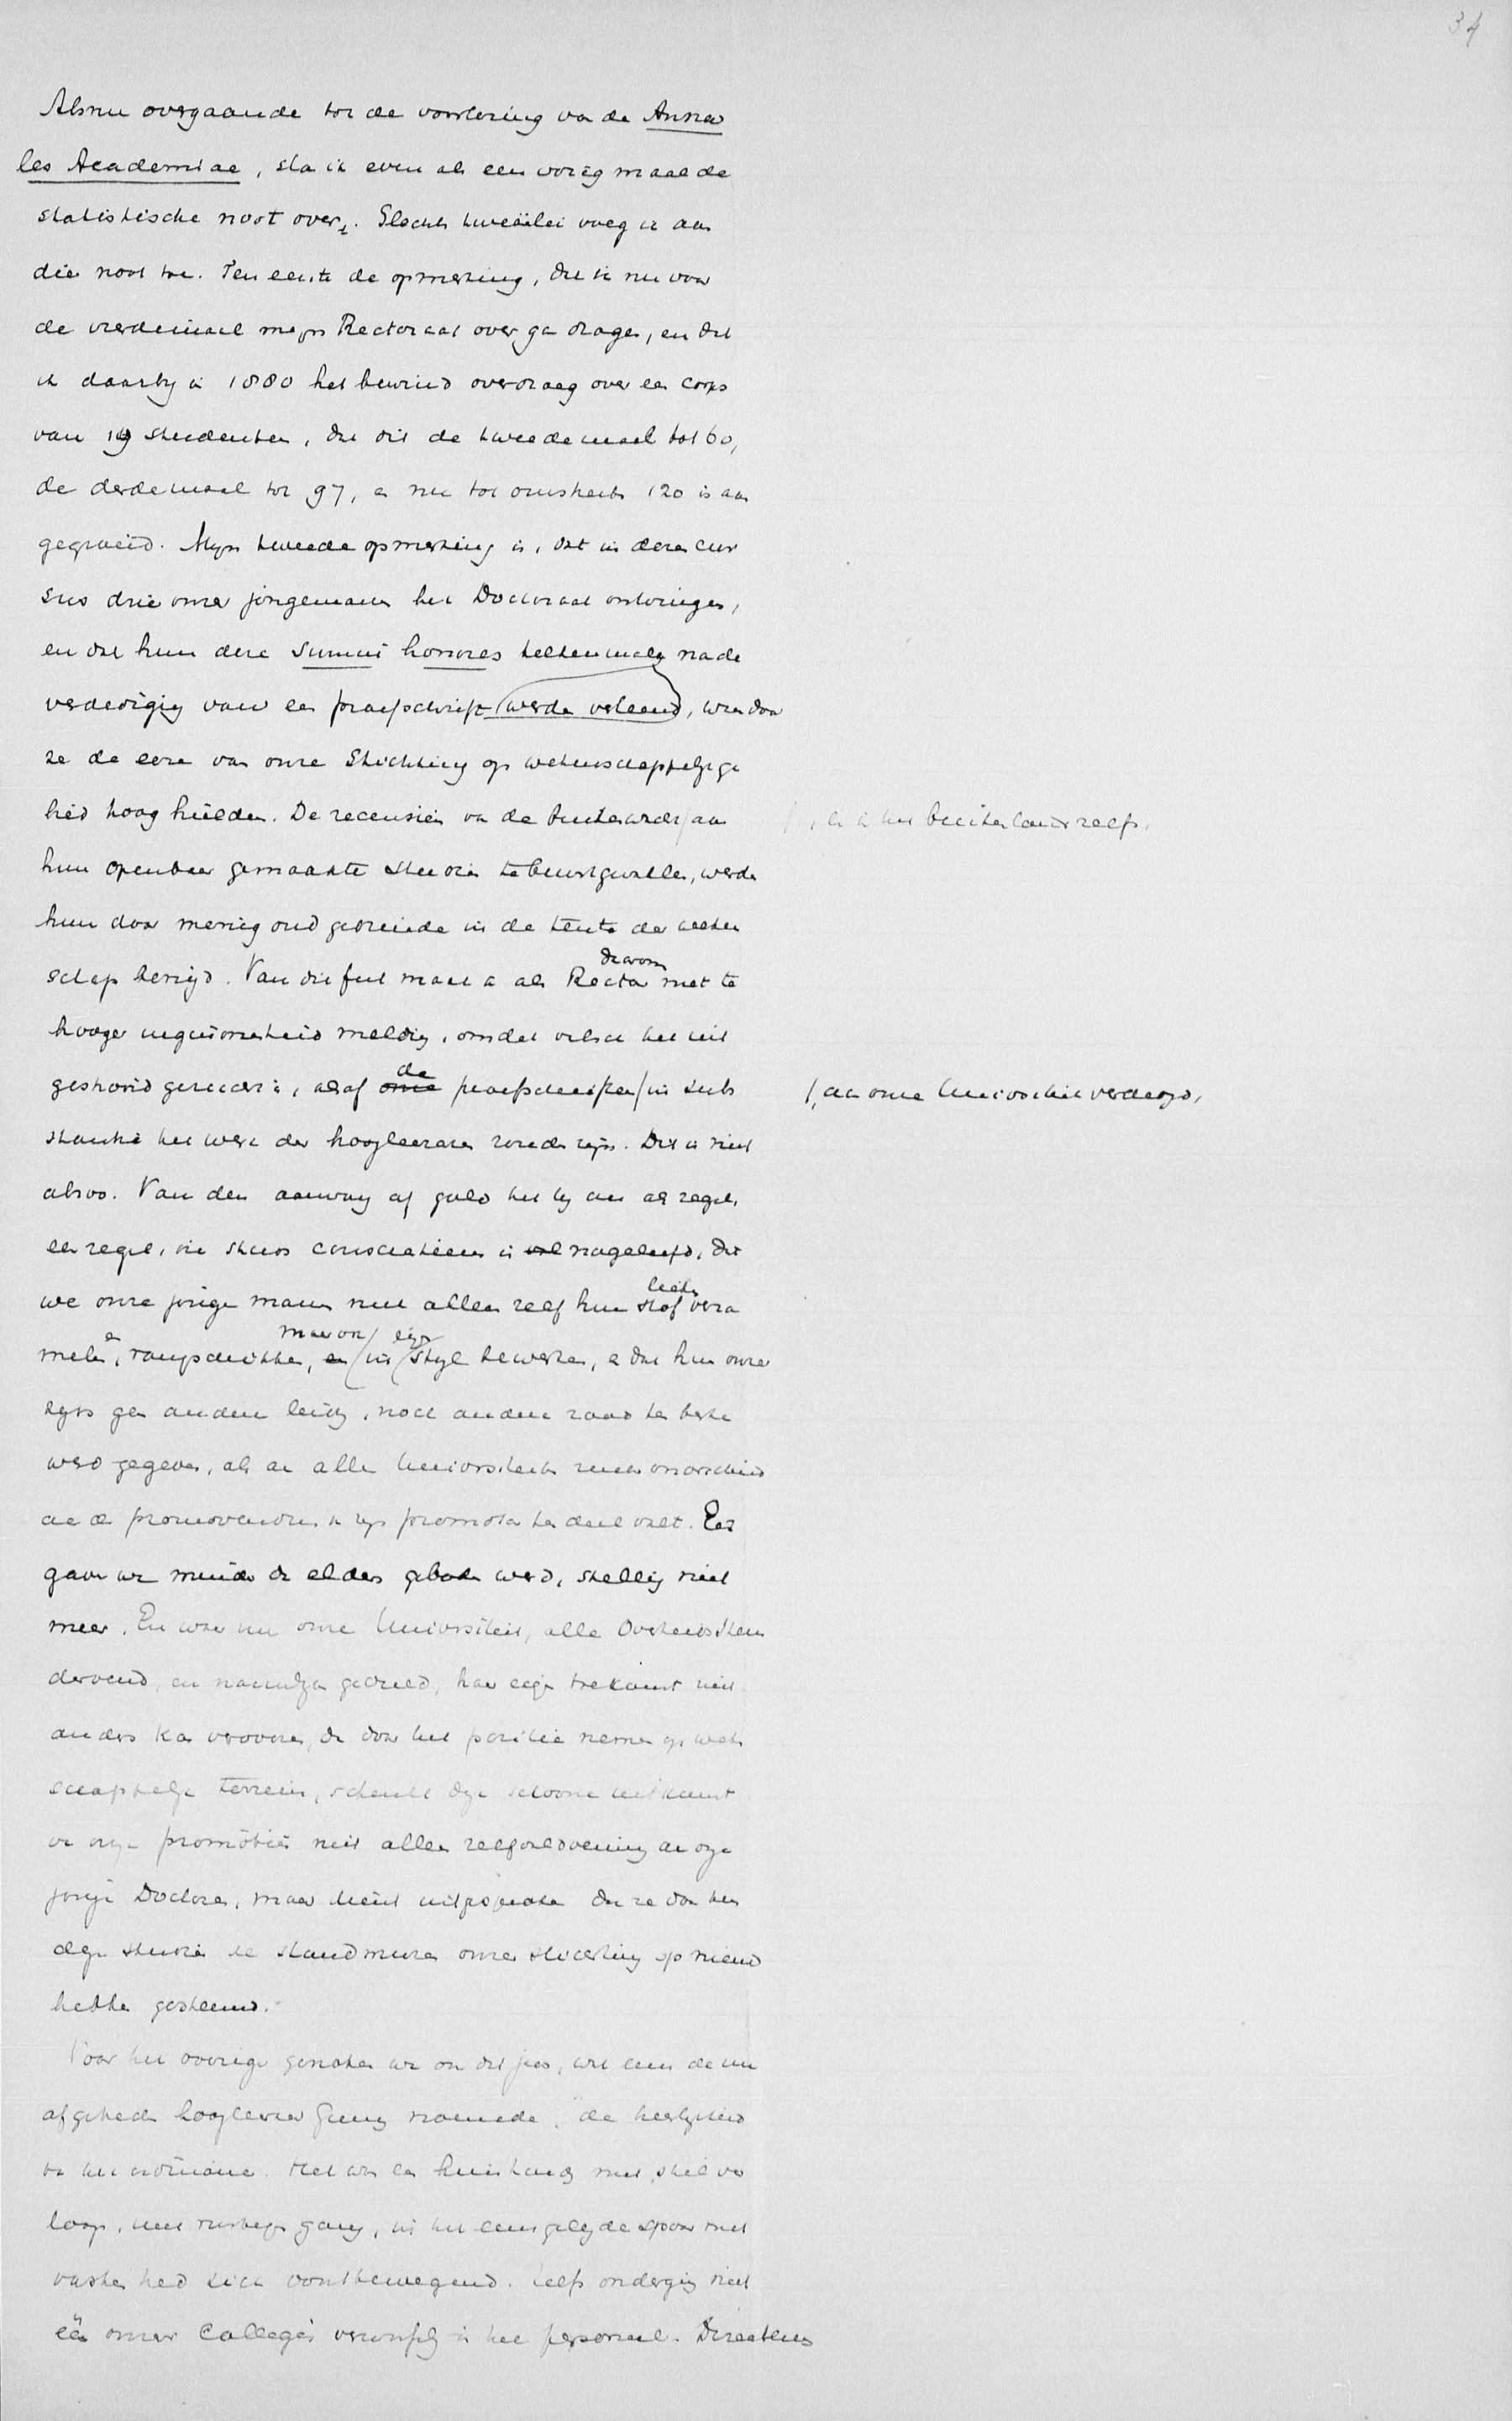 34
Alsnu overgaande tot de voorlezing van de Anna
les Academiae, sla ik even als een vorig maal de
statistische noot over. Slechts tweeërlei voeg ik aan
die noot toe. Ten eerste de opmerking, dat ik nu voor
de vierdemaal mijn Rectoraat over ga dragen, en dat
ik daarbij in 1880 het bewind overdroeg over een corps
van 19 studenten, dat dit de tweedemaal tot 60,
de derdemaal tot 97, en nu tot omstreeks 120 is aan
gegroeid. Mijn tweede opmerking is, dat in dezen cur
sus drie onzer jongemannen het Doctoraat ontvingen,
en dat hun deze summi honores telkenmale na de
verdediging van een proefschrift werden verleend, waardoor
ze de eere van onze Stichting op wetenschappelijk ge
bied hoog hielden. De recensiën van de buitenwacht aan
, en in het buitenland zelfs,
hun openbaar gemaakte studiën te beurt gevallen, werden
hun door menig oud gediende in de tente der weten
schap benijd. Van dit feit maak ik als Rector daarom met te
hooger ingenomenheid melding, omdat valsch het uit
gestrooid gerucht is, alsof onze de proefschriften in sub
, aan onze Universiteit verdedigd,
stantie het werk der hoogleeraren zouden zijn. Dit is niet
alzoo. Van den aanvang af gold het bij ons als regel,
een regel, die steeds consciëntieus is nageleefd, dat
we onze jonge mannen niet alleen zelf hun stof lieten verza
melen, rangschikken, en maar ook in eigen styl bewerken, en dat hun onzer
zijds geen andere leiding, noch andere raad ten beste
werd gegeven, als aan alle Universiteiten zonder onderscheid
aan de promovendus in zijn promotor ten deel valt. Eer
gaven we minder dan elders geboden werd, stellig niet
meer. En waar nu onze Universiteit, alle Overheidssteun
dervend, en nauwlijks geduld, haar eigen toekomst niet
anders kan veroveren, dan door het positie nemen op weten
schappelijk terrein, schenkt dze schoone uitkomst
van onze promotiën niet alleen zelfvoldoening aan onze
jonge Doctoren, maar dient uitgesproken dat ze door hun
degen studiën de standmuren onzer stichting op nieuw
hebben gesteund.
Voor het overige genoten we ook dit jaar, wat eens de nu
afgetreden hoogleeraar Gunning noemde, "de heerlijkheid
van het ordinaire. Het was een huishouding met stil ver
loop, met rustigen gang, in het eens gelegde spoor met
vastheid zich voortbewegend. Zelfs onderging niet
één onzer Collegiën verandering in het personeel. Directeuren